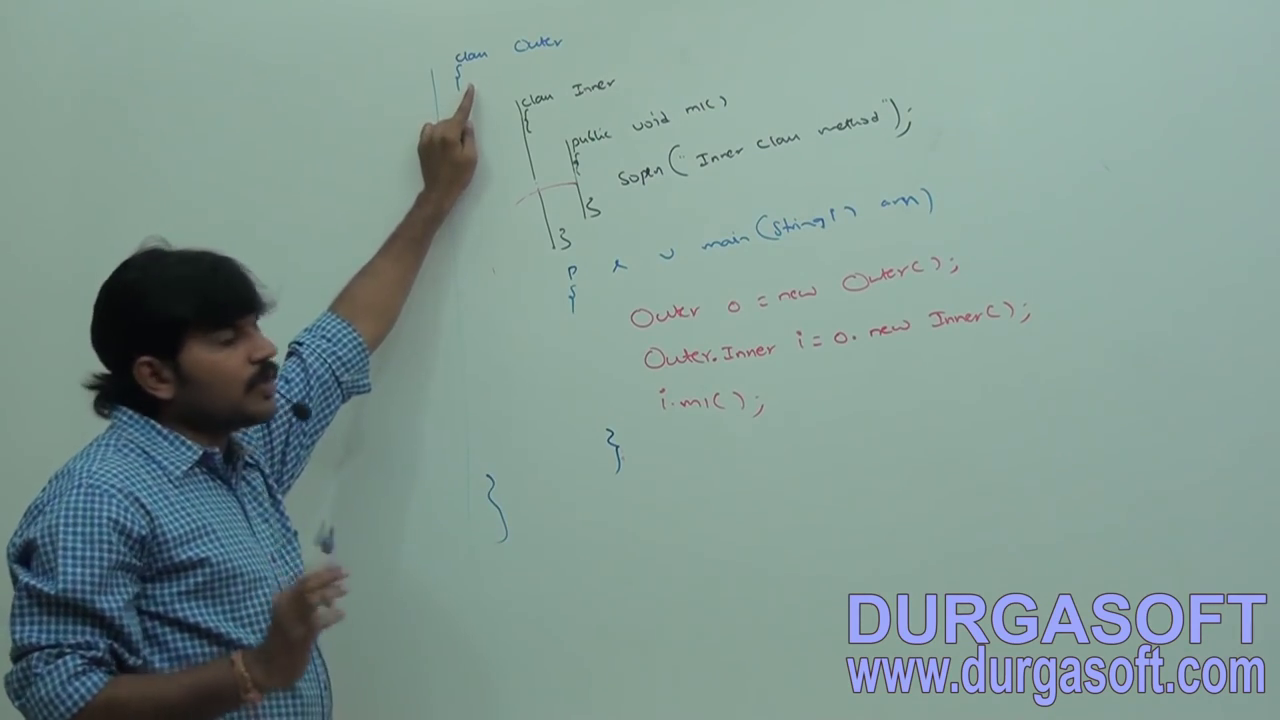 class Outer
{
class Inner
{
public void m1()
{
Sopln("Inner class method");
}
}
p s v main(String[] args)
{
Outer o = new Outer();
Outer.Inner i = o.new Inner();
i.m1();
}
}
DURGASOFT
www.durgasoft.com